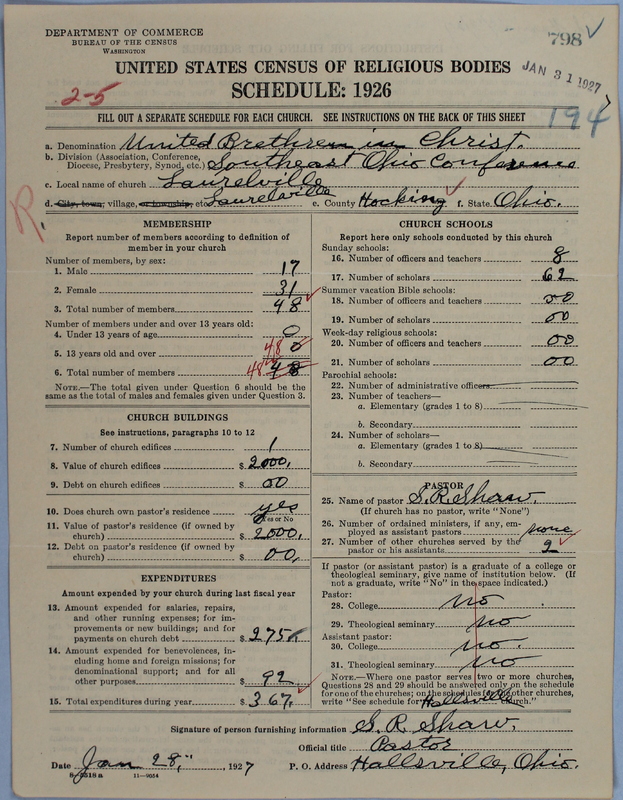 DEPARTMENT OF COMMERCE
BUREAU OF THE CENSUS
WASHINGTON
798 ✓
UNITED STATES CENSUS OF RELIGIOUS BODIES
JAN 31 1927
SCHEDULE: 1926
2-5
FILL OUT A SEPARATE SCHEDULE FOR EACH CHURCH. SEE INSTRUCTIONS ON THE BACK OF THIS SHEET
194
a. Denomination United Brethren in Christ.
b. Division (Association, Conference,
Diocese, Presbytery, Synod, etc.) Southeast Ohio Conference
c. Local name of church Laurelville
d. City, town, village, or township, etc. Laurelville e. County Hocking ✓ f. State Ohio.
R.
MEMBERSHIP
Report number of members according to definition of
member in your church
Number of members, by sex:
1. Male 17
2. Female 31
3. Total number of members 48 ✓
Number of members under and over 13 years old:
4. Under 13 years of age 0
5. 13 years old and over 48 0
6. Total number of members 48 48
NOTE.—The total given under Question 6 should be the
same as the total of males and females given under Question 3.
CHURCH BUILDINGS
See instructions, paragraphs 10 to 12
7. Number of church edifices 1
8. Value of church edifices $ 2000.
9. Debt on church edifices $ 00
10. Does church own pastor's residence? yes
Yes or No
11. Value of pastor's residence (if owned by
church) $ 2000.
12. Debt on pastor's residence (if owned by
church) $ 00.
EXPENDITURES
Amount expended by your church during last fiscal year
13. Amount expended for salaries, repairs,
and other running expenses; for im-
provements or new buildings; and for
payments on church debt $ 275.
14. Amount expended for benevolences, in-
cluding home and foreign missions; for
denominational support; and for all
other purposes $ 92
15. Total expenditures during year $ 367. ✓
CHURCH SCHOOLS
Report here only schools conducted by this church
Sunday schools:
16. Number of officers and teachers 8
17. Number of scholars 62
Summer vacation Bible schools:
18. Number of officers and teachers 00
19. Number of scholars 00
Week-day religious schools:
20. Number of officers and teachers 00
21. Number of scholars 00
Parochial schools:
22. Number of administrative officers
23. Number of teachers—
a. Elementary (grades 1 to 8)
b. Secondary
24. Number of scholars—
a. Elementary (grades 1 to 8)
b. Secondary
PASTOR
25. Name of pastor S. R. Shaw.
(If church has no pastor, write "None")
26. Number of ordained ministers, if any, em-
ployed as assistant pastors none
27. Number of other churches served by the
pastor or his assistants 2 ✓
If pastor (or assistant pastor) is a graduate of a college or
theological seminary, give name of institution below. (If
not a graduate, write "No" in the space indicated.)
Pastor:
28. College no
29. Theological seminary no
Assistant pastor:
30. College no.
31. Theological seminary no
NOTE.—Where one pastor serves two or more churches,
Questions 28 and 29 should be answered only on the schedule
for one of the churches; on the schedules for the other churches,
write "See schedule for Hallsville Church."
Signature of person furnishing information S. R. Shaw.
Official title Pastor
Date Jan 28, 1927 P. O. Address Hallsville, Ohio.
8-2318 a 11-9054